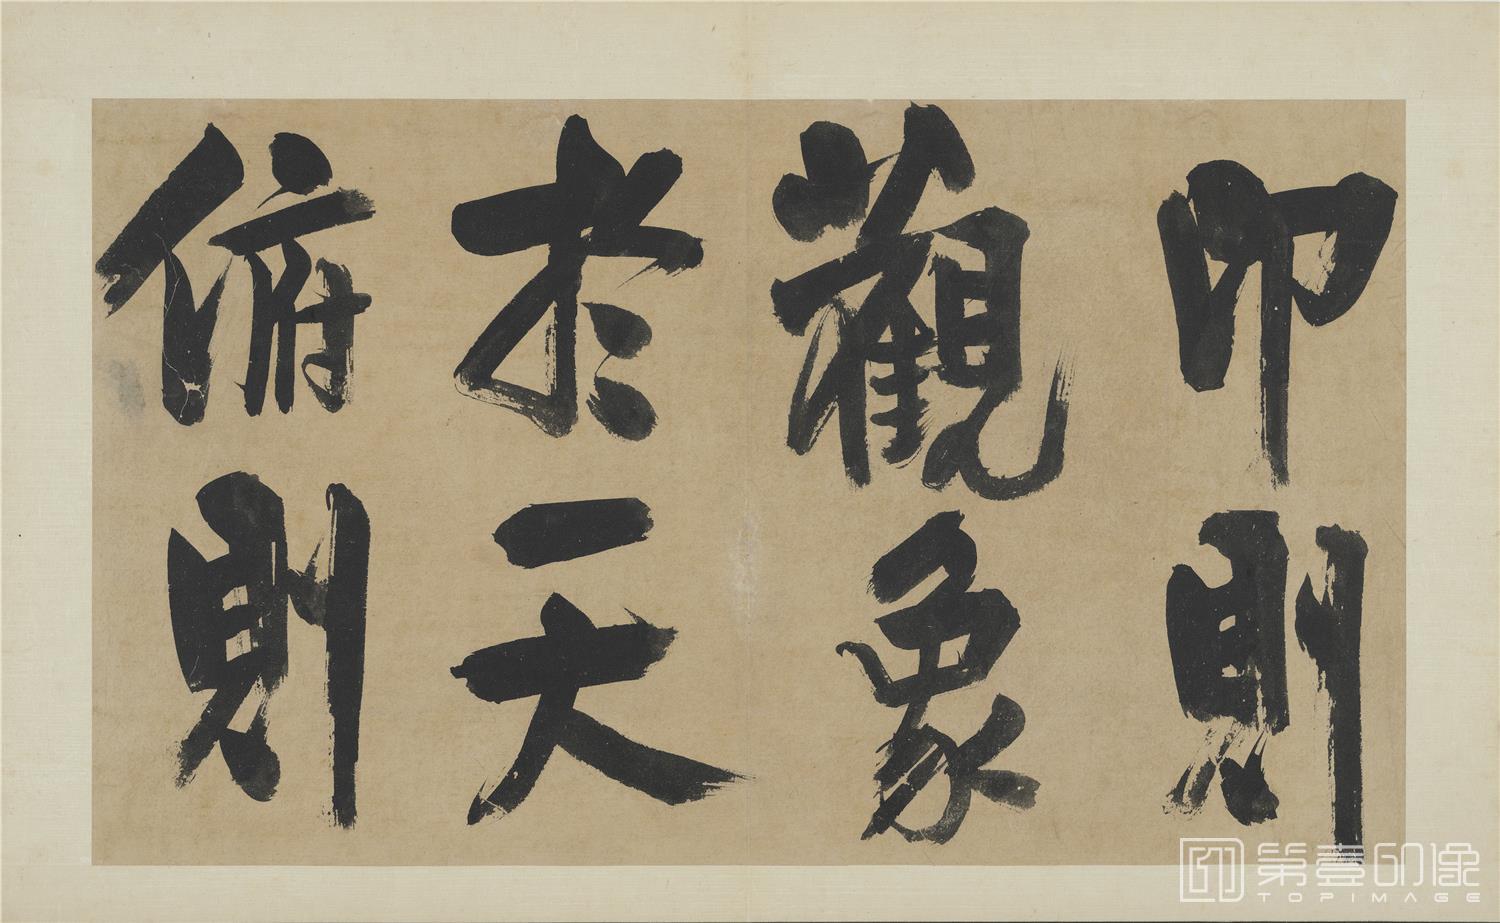 卬則
觀象
於天
俯則
第壹印像
TOPIMAGE